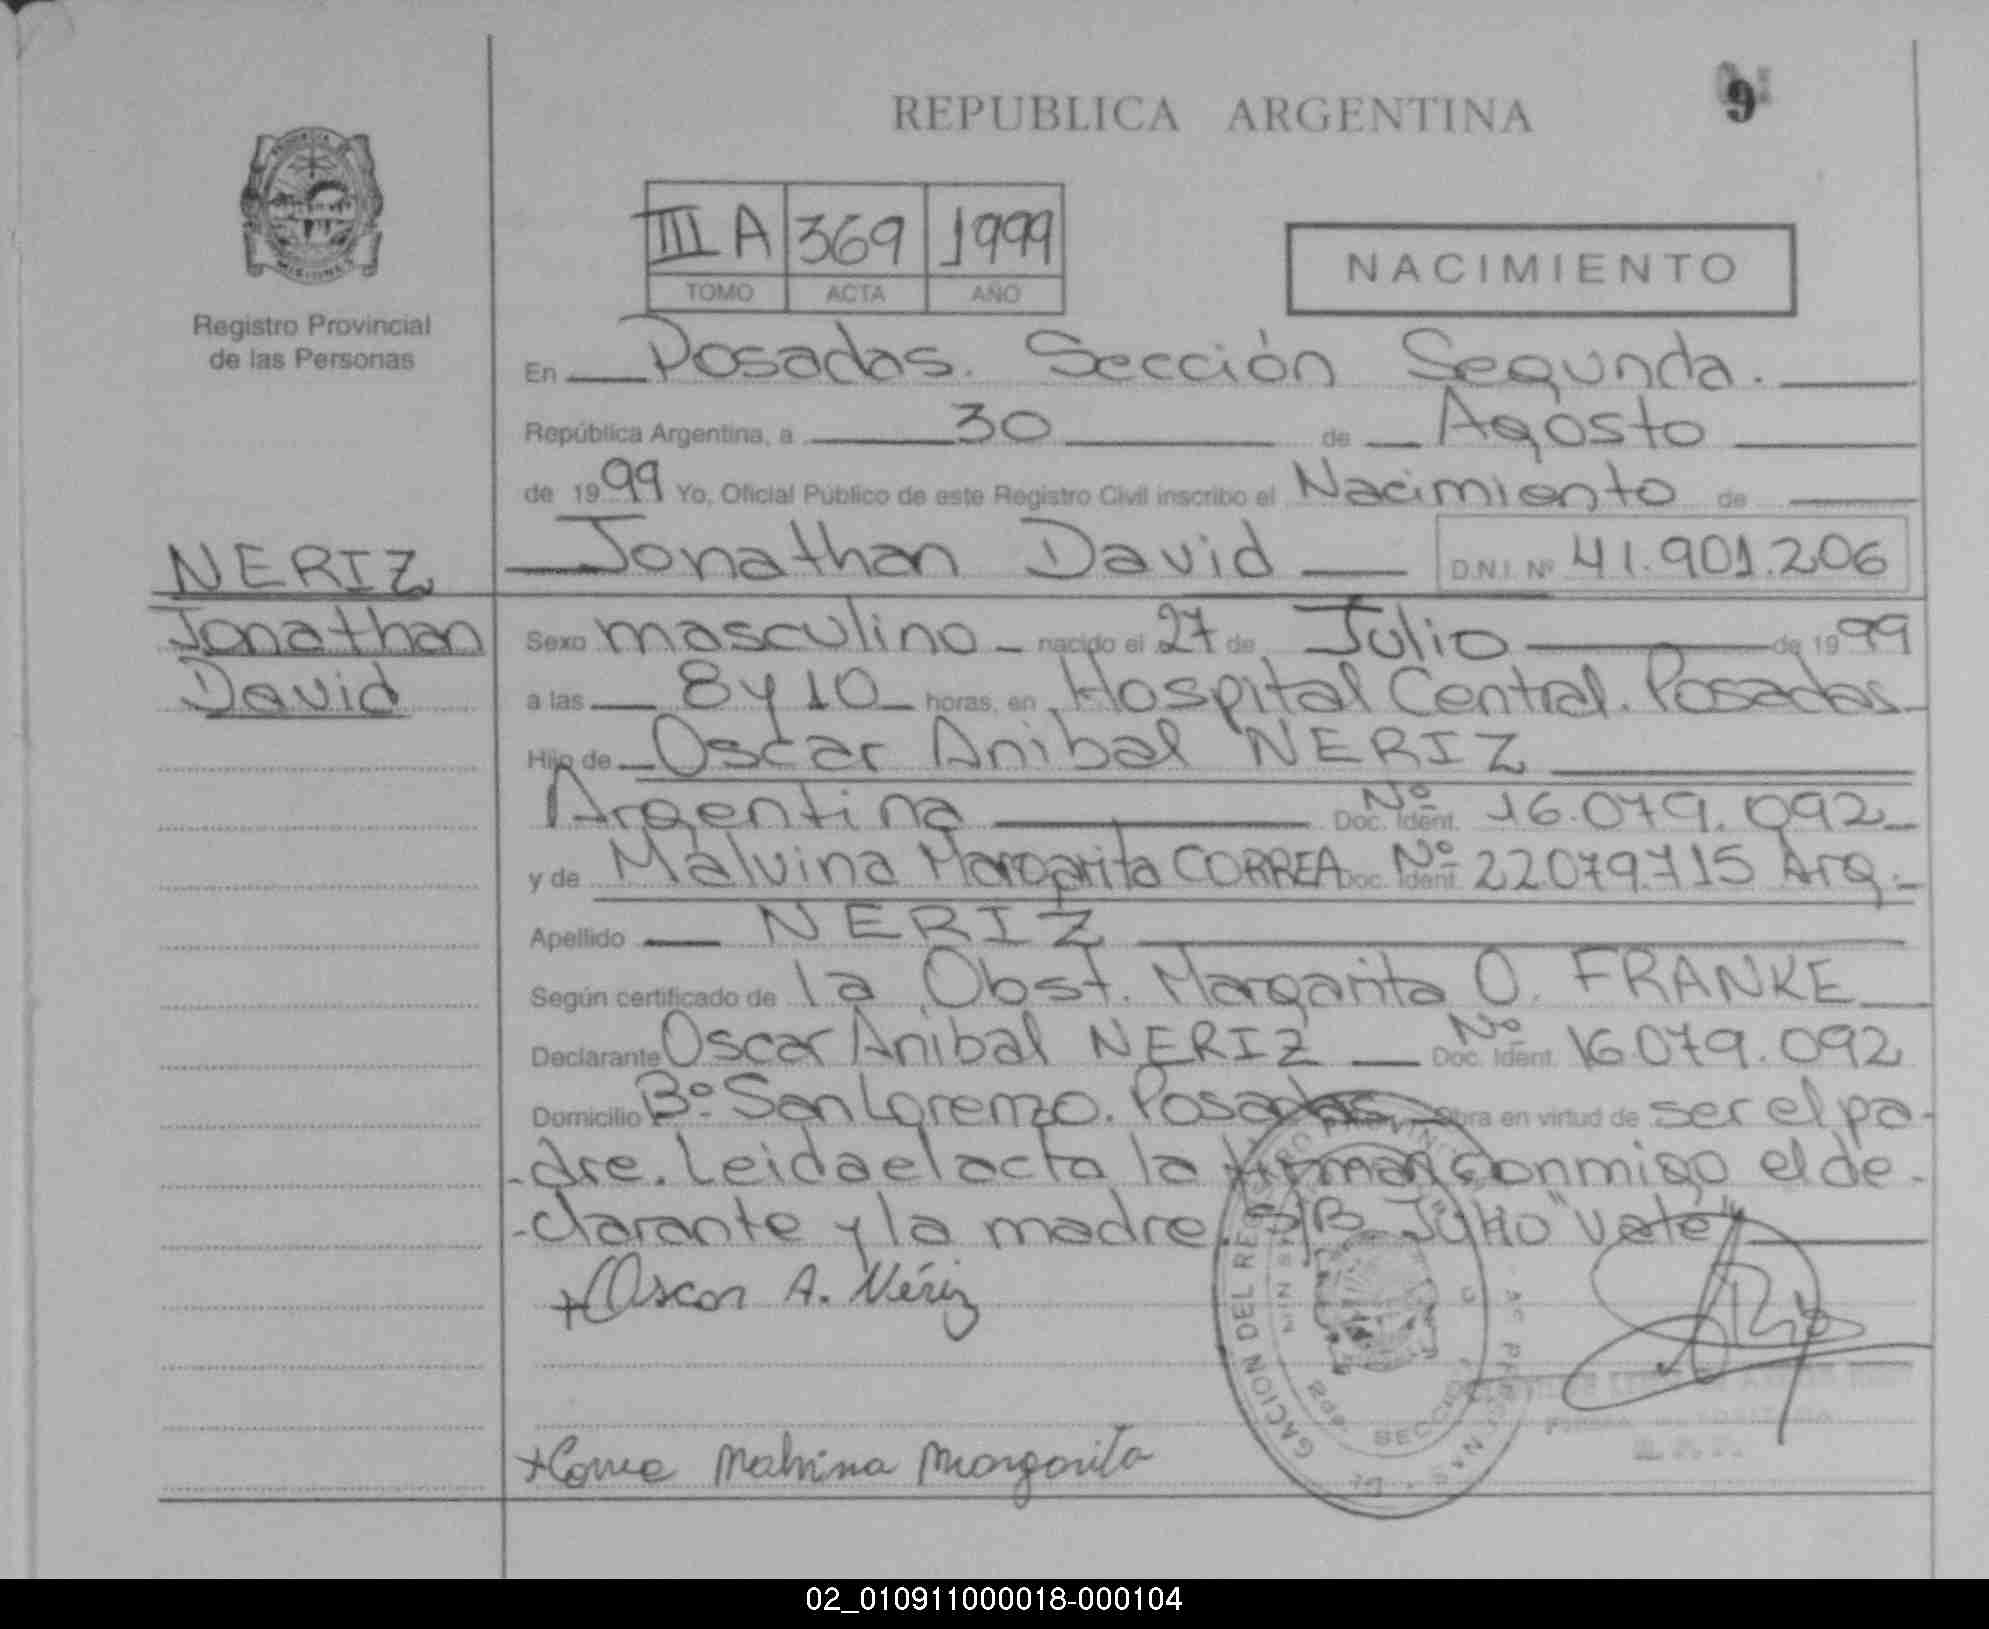 REPUBLICA ARGENTINA
9
III A 369 1999
TOMO ACTA AÑO
NACIMIENTO
Registro Provincial
de las Personas
En Posadas. Sección Segunda.
República Argentina, a 30 de Agosto
de 1999 Yo, Oficial Público de este Registro Civil inscribo el Nacimiento de
NERIZ
Jonathan David D.N.I. Nº 41.901.206
Jonathan
David
Sexo masculino nacido el 27 de Julio de 1999
a las 8 y 10 horas, en Hospital Central. Posadas
Hijo de Oscar Anibal NERIZ
Argentina Nº Doc. Ident. 16.079.092
y de Malvina Margarita CORREA Nº Doc. Ident. 22.079.715 Arg.
Apellido NERIZ
Según certificado de la Obst. Margarita O. FRANKE
Declarante Oscar Anibal NERIZ Nº Doc. Ident. 16.079.092
Domicilio Bº San Lorenzo. Posadas Obra en virtud de ser el pa-
-dre. Leida el acta la firman conmigo el de-
-clarante y la madre. S/B Julio "Vale"
+ Oscar A. Nériz
GACION DEL REGISTRO PROVINC
SECCION
+ Correa Malvina Margarita
02_010911000018-000104